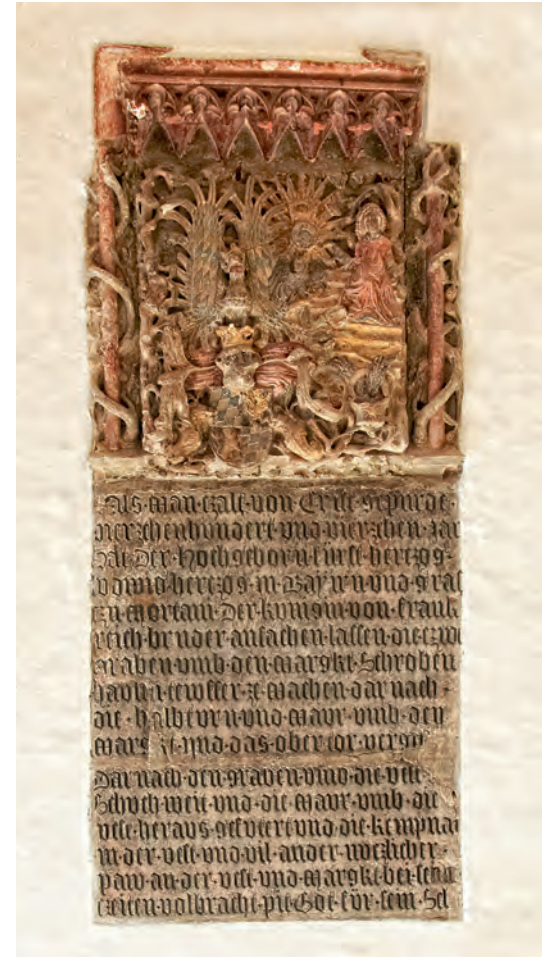 Als · man · czalt · von · Crist · gepurde ·
vierzehenhundert · und · vierzehen · Jar
hat · Der · hochgeborn · fürst · hertzog ·
ludwig · hertzog · in · Bayrn · und · graf
czu · Mortani · Der · kunigin · von · frank
reich · bruder · anfachen · lassen · die · czwen
graben · umb · den · Margkt · Schroben
hausn · tewffer · ze · machen · dar nach ·
die · halb · turn · und · Maur · umb · den
Margkt · und · das · ober · tor ·
Dar nach · den · graben · umb · die · vest
Schuch · weit · und · die · Maur · umb · die
vest · heraus · gefuert · und · die · kempnat
in · der · vest · und · vil · ander · nuczlicher ·
paw · an · der · vest · und · Margkt · bei · sein
czeiten · volbracht · pit · Got · für · sein · Sel